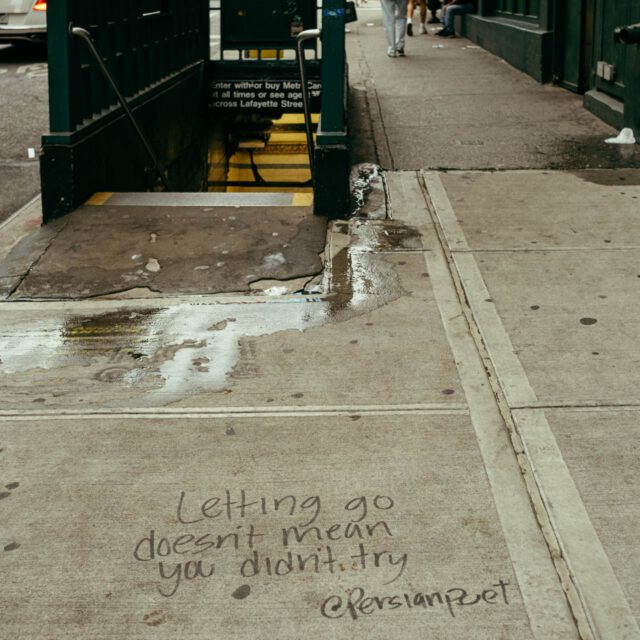 Enter with or buy Metro
at all times or see agent
across Lafayette Street
Letting go
doesn't mean
you didn't try
@Persianpoet